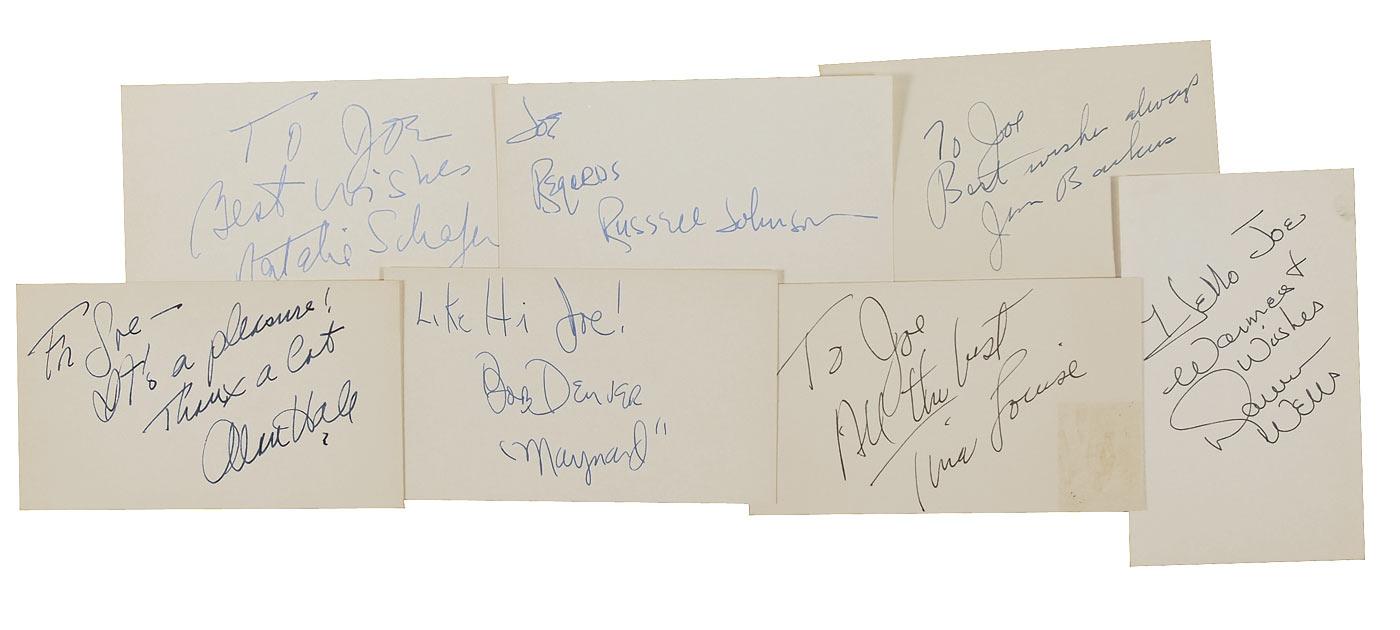 To Joe
Best Wishes
Natalie Schafer
Joe
Regards
Russell Johnson
To Joe
Best wishes always
Jim Backus
Hello Joe
Warmest
Wishes
Dawn
Wells
Fr Joe —
It's a pleasure!
Thanx a lot
Alan Hale
Like Hi Joe!
Bob Denver
"Maynard"
To Joe
All the best
Tina Louise